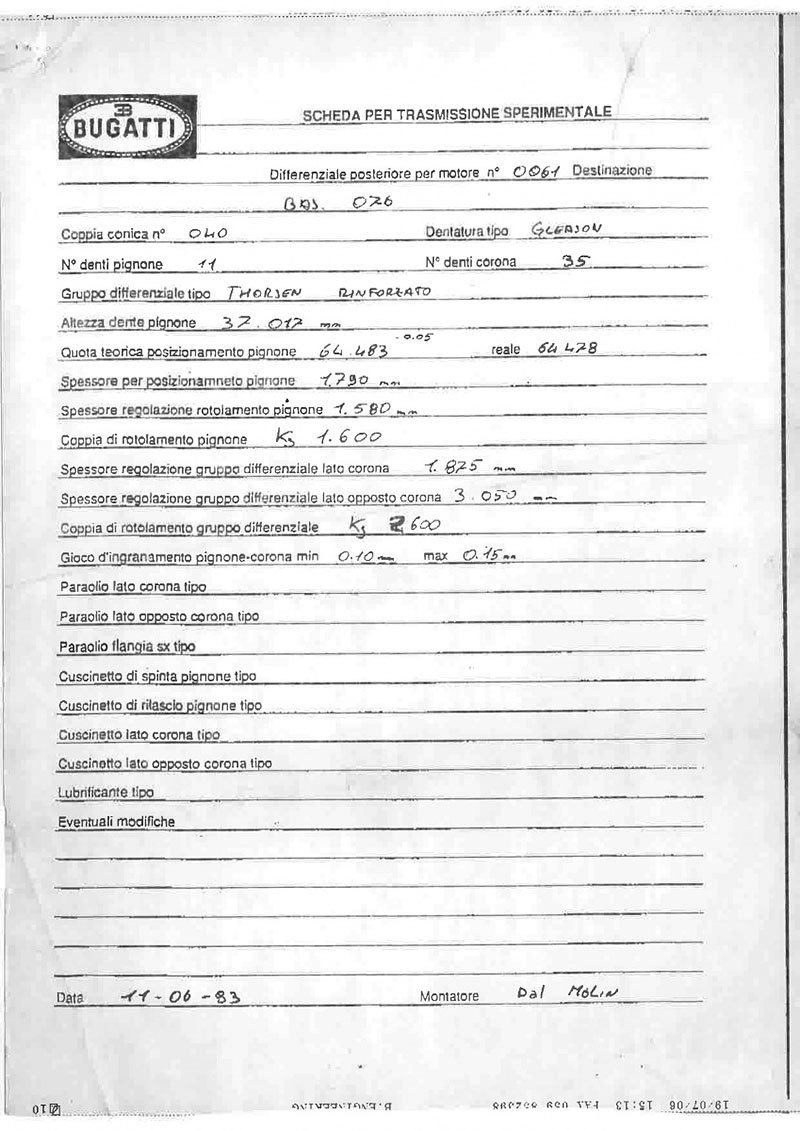 EB
BUGATTI
SCHEDA PER TRASMISSIONE SPERIMENTALE
Differenziale posteriore per motore n° 0061 Destinazione
026
Coppia conica n° 040 Dentatura tipo GLEASON
N° denti pignone 11 N° denti corona 35
Gruppo differenziale tipo THORSEN RINFORZATO
Altezza dente pignone 37.017 mm
Quota teorica posizionamento pignone 64.483 -0.05 reale 64 478
Spessore per posizionamneto pignone 1.790 mm
Spessore regolazione rotolamento pignone 1.580 mm
Coppia di rotolamento pignone Kg 1.600
Spessore regolazione gruppo differenziale lato corona 1.825 mm
Spessore regolazione gruppo differenziale lato opposto corona 3.050 mm
Coppia di rotolamento gruppo differenziale Kg 2600
Gioco d'ingranamento pignone-corona min 0.10 mm max 0.15 mm
Paraolio lato corona tipo
Paraolio lato opposto corona tipo
Paraolio flangia sx tipo
Cuscinetto di spinta pignone tipo
Cuscinetto di rilascio pignone tipo
Cuscinetto lato corona tipo
Cuscinetto lato opposto corona tipo
Lubrificante tipo
Eventuali modifiche
Data 11-06-93 Montatore Dal MOLIN
19/07/06 15:13 FAX 059 B.ENGINEERING 01